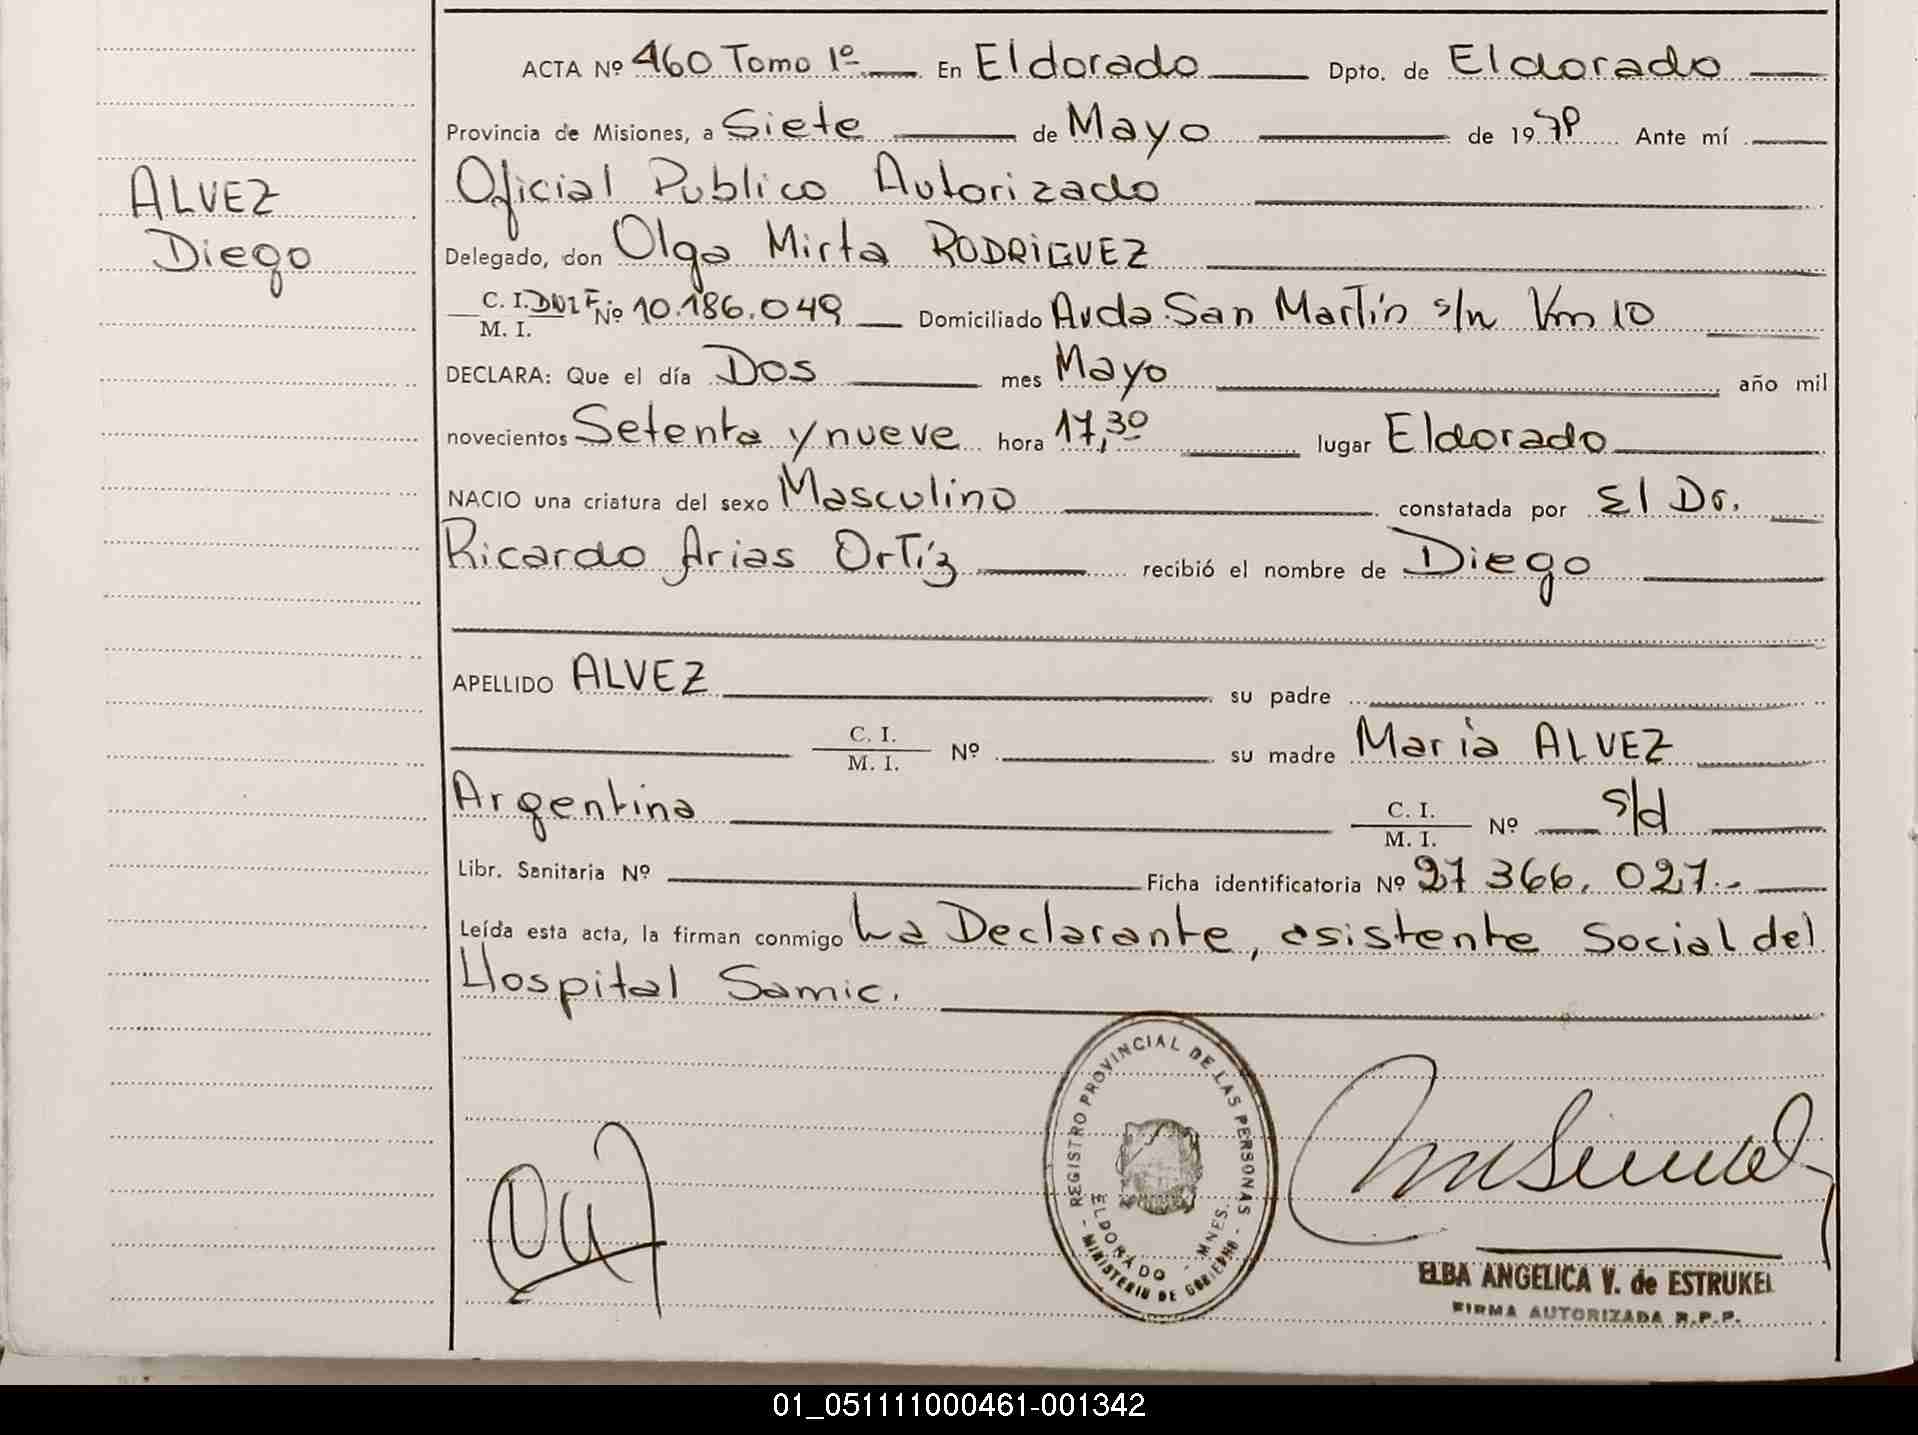 ACTA Nº 460 Tomo 1º En Eldorado Dpto. de Eldorado
Provincia de Misiones, a Siete de Mayo de 1979 Ante mí
ALVEZ
Diego
Oficial Publico Autorizado
Delegado, don Olga Mirta RODRIGUEZ
C. I. M. I. Nº 10.186.049 Domiciliado Avda San Martín s/n Km 10
DECLARA: Que el día Dos mes Mayo año mil
novecientos Setenta y nueve hora 17,30 lugar Eldorado
NACIO una criatura del sexo Masculino constatada por El Dr.
Ricardo Arias Ortíz recibió el nombre de Diego
APELLIDO ALVEZ su padre
C. I. M. I. Nº su madre María ALVEZ
Argentina C. I. M. I. Nº s/d
Libr. Sanitaria Nº Ficha identificatoria Nº 27 366. 027.-
Leída esta acta, la firman conmigo La Declarante, asistente Social del
Hospital Samic.
REGISTRO PROVINCIAL DE LAS PERSONAS
ELDORADO - MNES.
- MINISTERIO DE GOBIERNO -
ELBA ANGELICA V. de ESTRUKEL
FIRMA AUTORIZADA R.P.P.
01_051111000461-001342